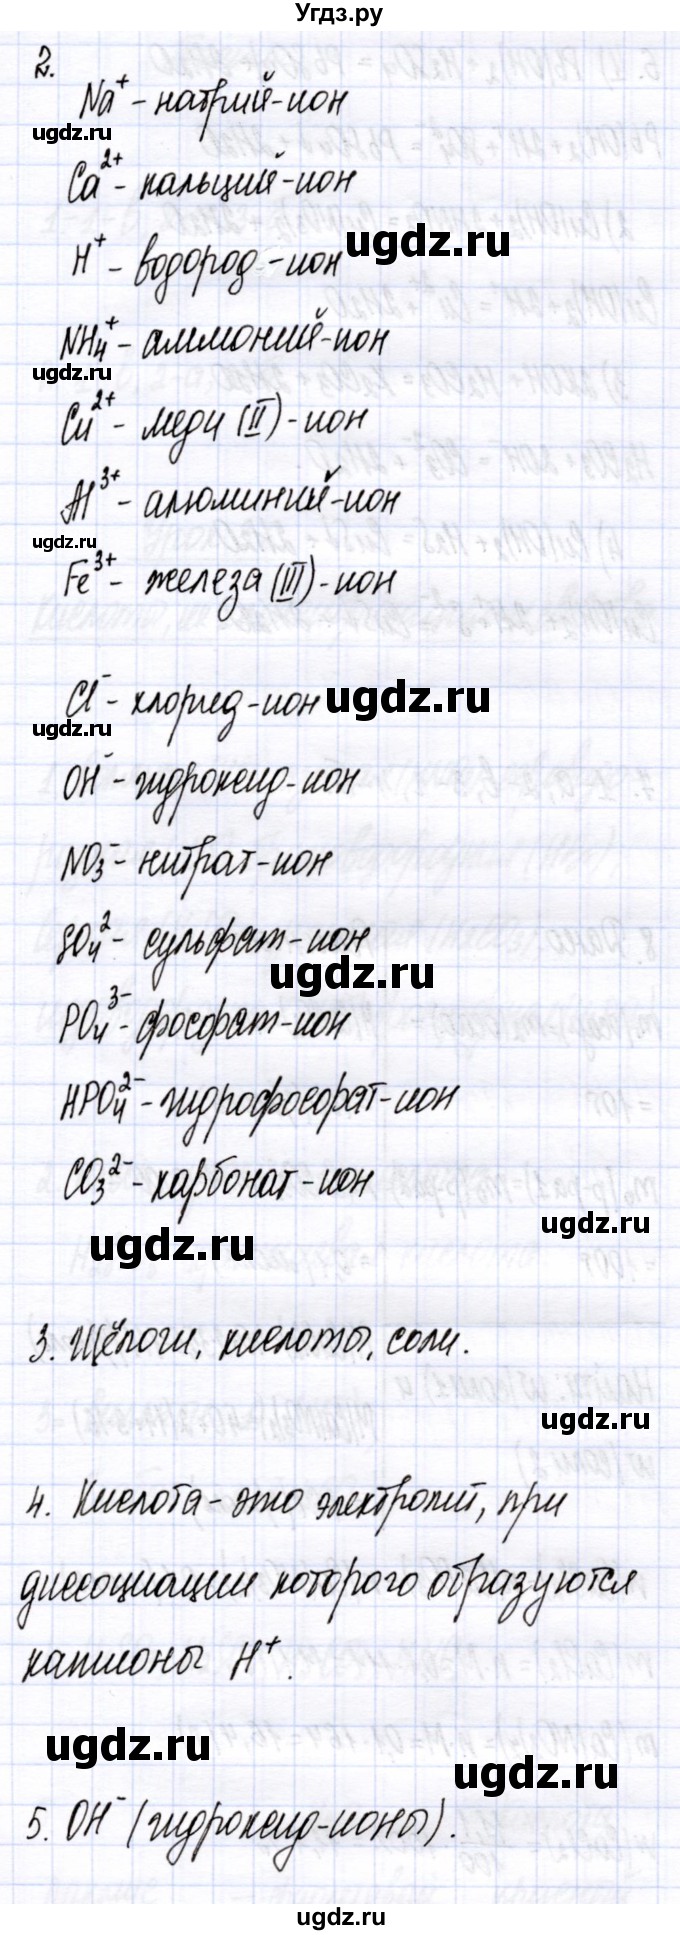 Угдз.ру
2.
Na⁺ - натрий-ион
ugdz.ru
Ca²⁺ - кальций-ион
ugdz.ru
H⁺ - водород-ион
NH₄⁺ - аммоний-ион
ugdz.ru
Cu²⁺ - меди (II) - ион
Al³⁺ - алюминий-ион
ugdz.ru
Fe³⁺ - железа (III) - ион
Cl⁻ - хлорид-ион
ugdz.ru
ugdz.ru
OH⁻ - гидроксид-ион
NO₃⁻ - нитрат-ион
SO₄² - сульфат-ион
ugdz.ru
PO₄³⁻ - фосфат-ион
HPO₄²⁻ - гидрофосфат-ион
CO₃²⁻ - карбонат-ион
ugdz.ru
ugdz.ru
3. Щёлочи, кислоты, соли.
ugdz.ru
4. Кислота - это электролит, при
диссоциации которого образуются
катионы H⁺.
ugdz.ru
ugdz.ru
5. OH⁻ (гидроксид-ионы).
ugdz.ru